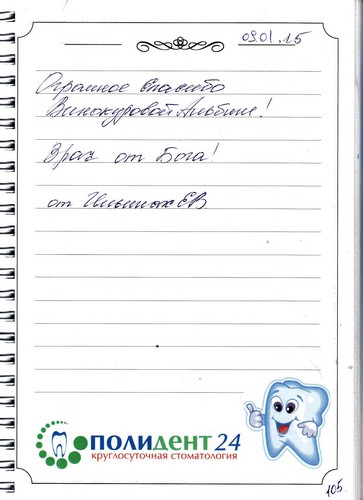 09.01.15
Огромное спасибо
Винокуровой Альбине!
Врач от Бога!
от Ильиных ЕВ.
ПОЛИДЕНТ 24
круглосуточная стоматология
105